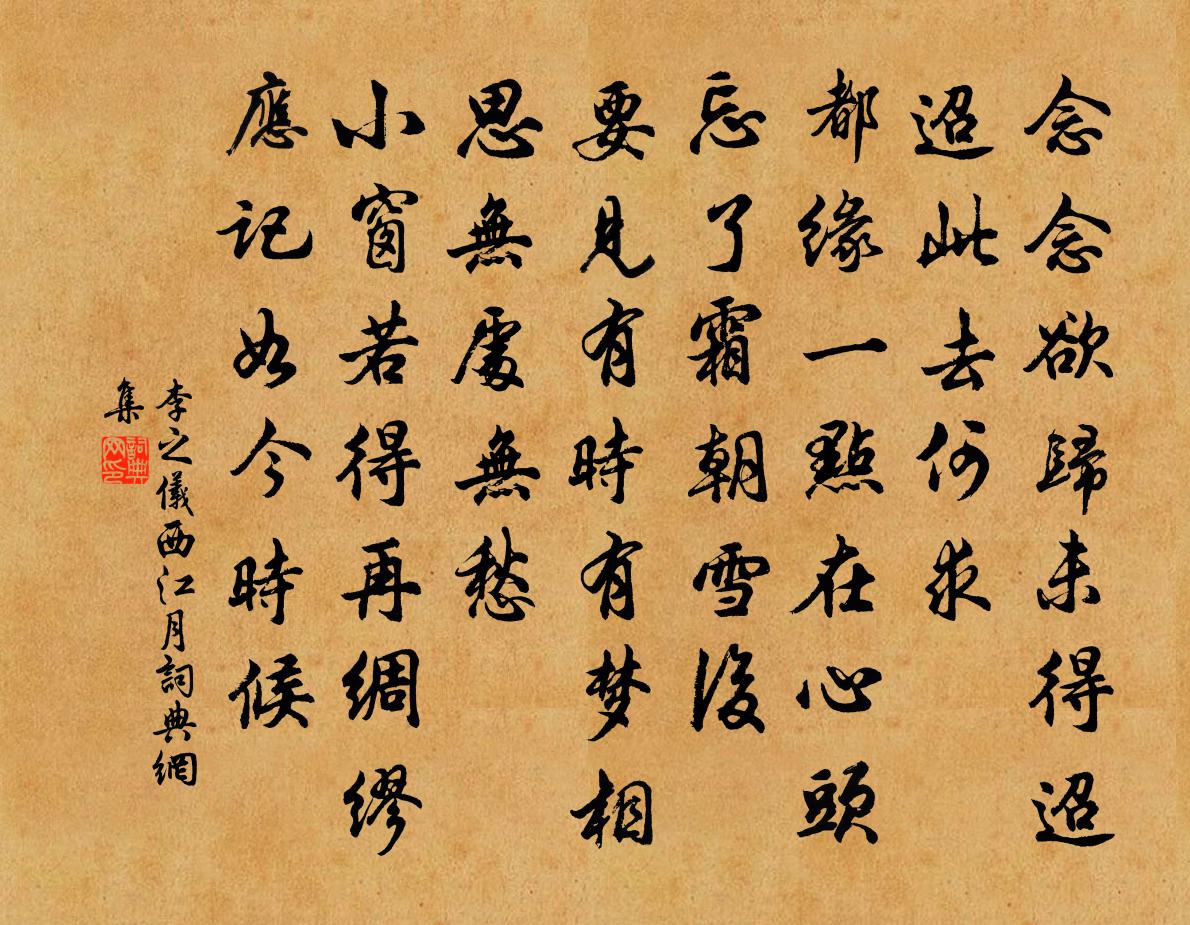 念念欲歸未得迢
迢此去何求
都緣一點在心頭
忘了霜朝雪後
要見有時有梦相
思無處無愁
小窗若得再綢繆
應記如今時候
李之儀西江月詞典網
集
詞典网印